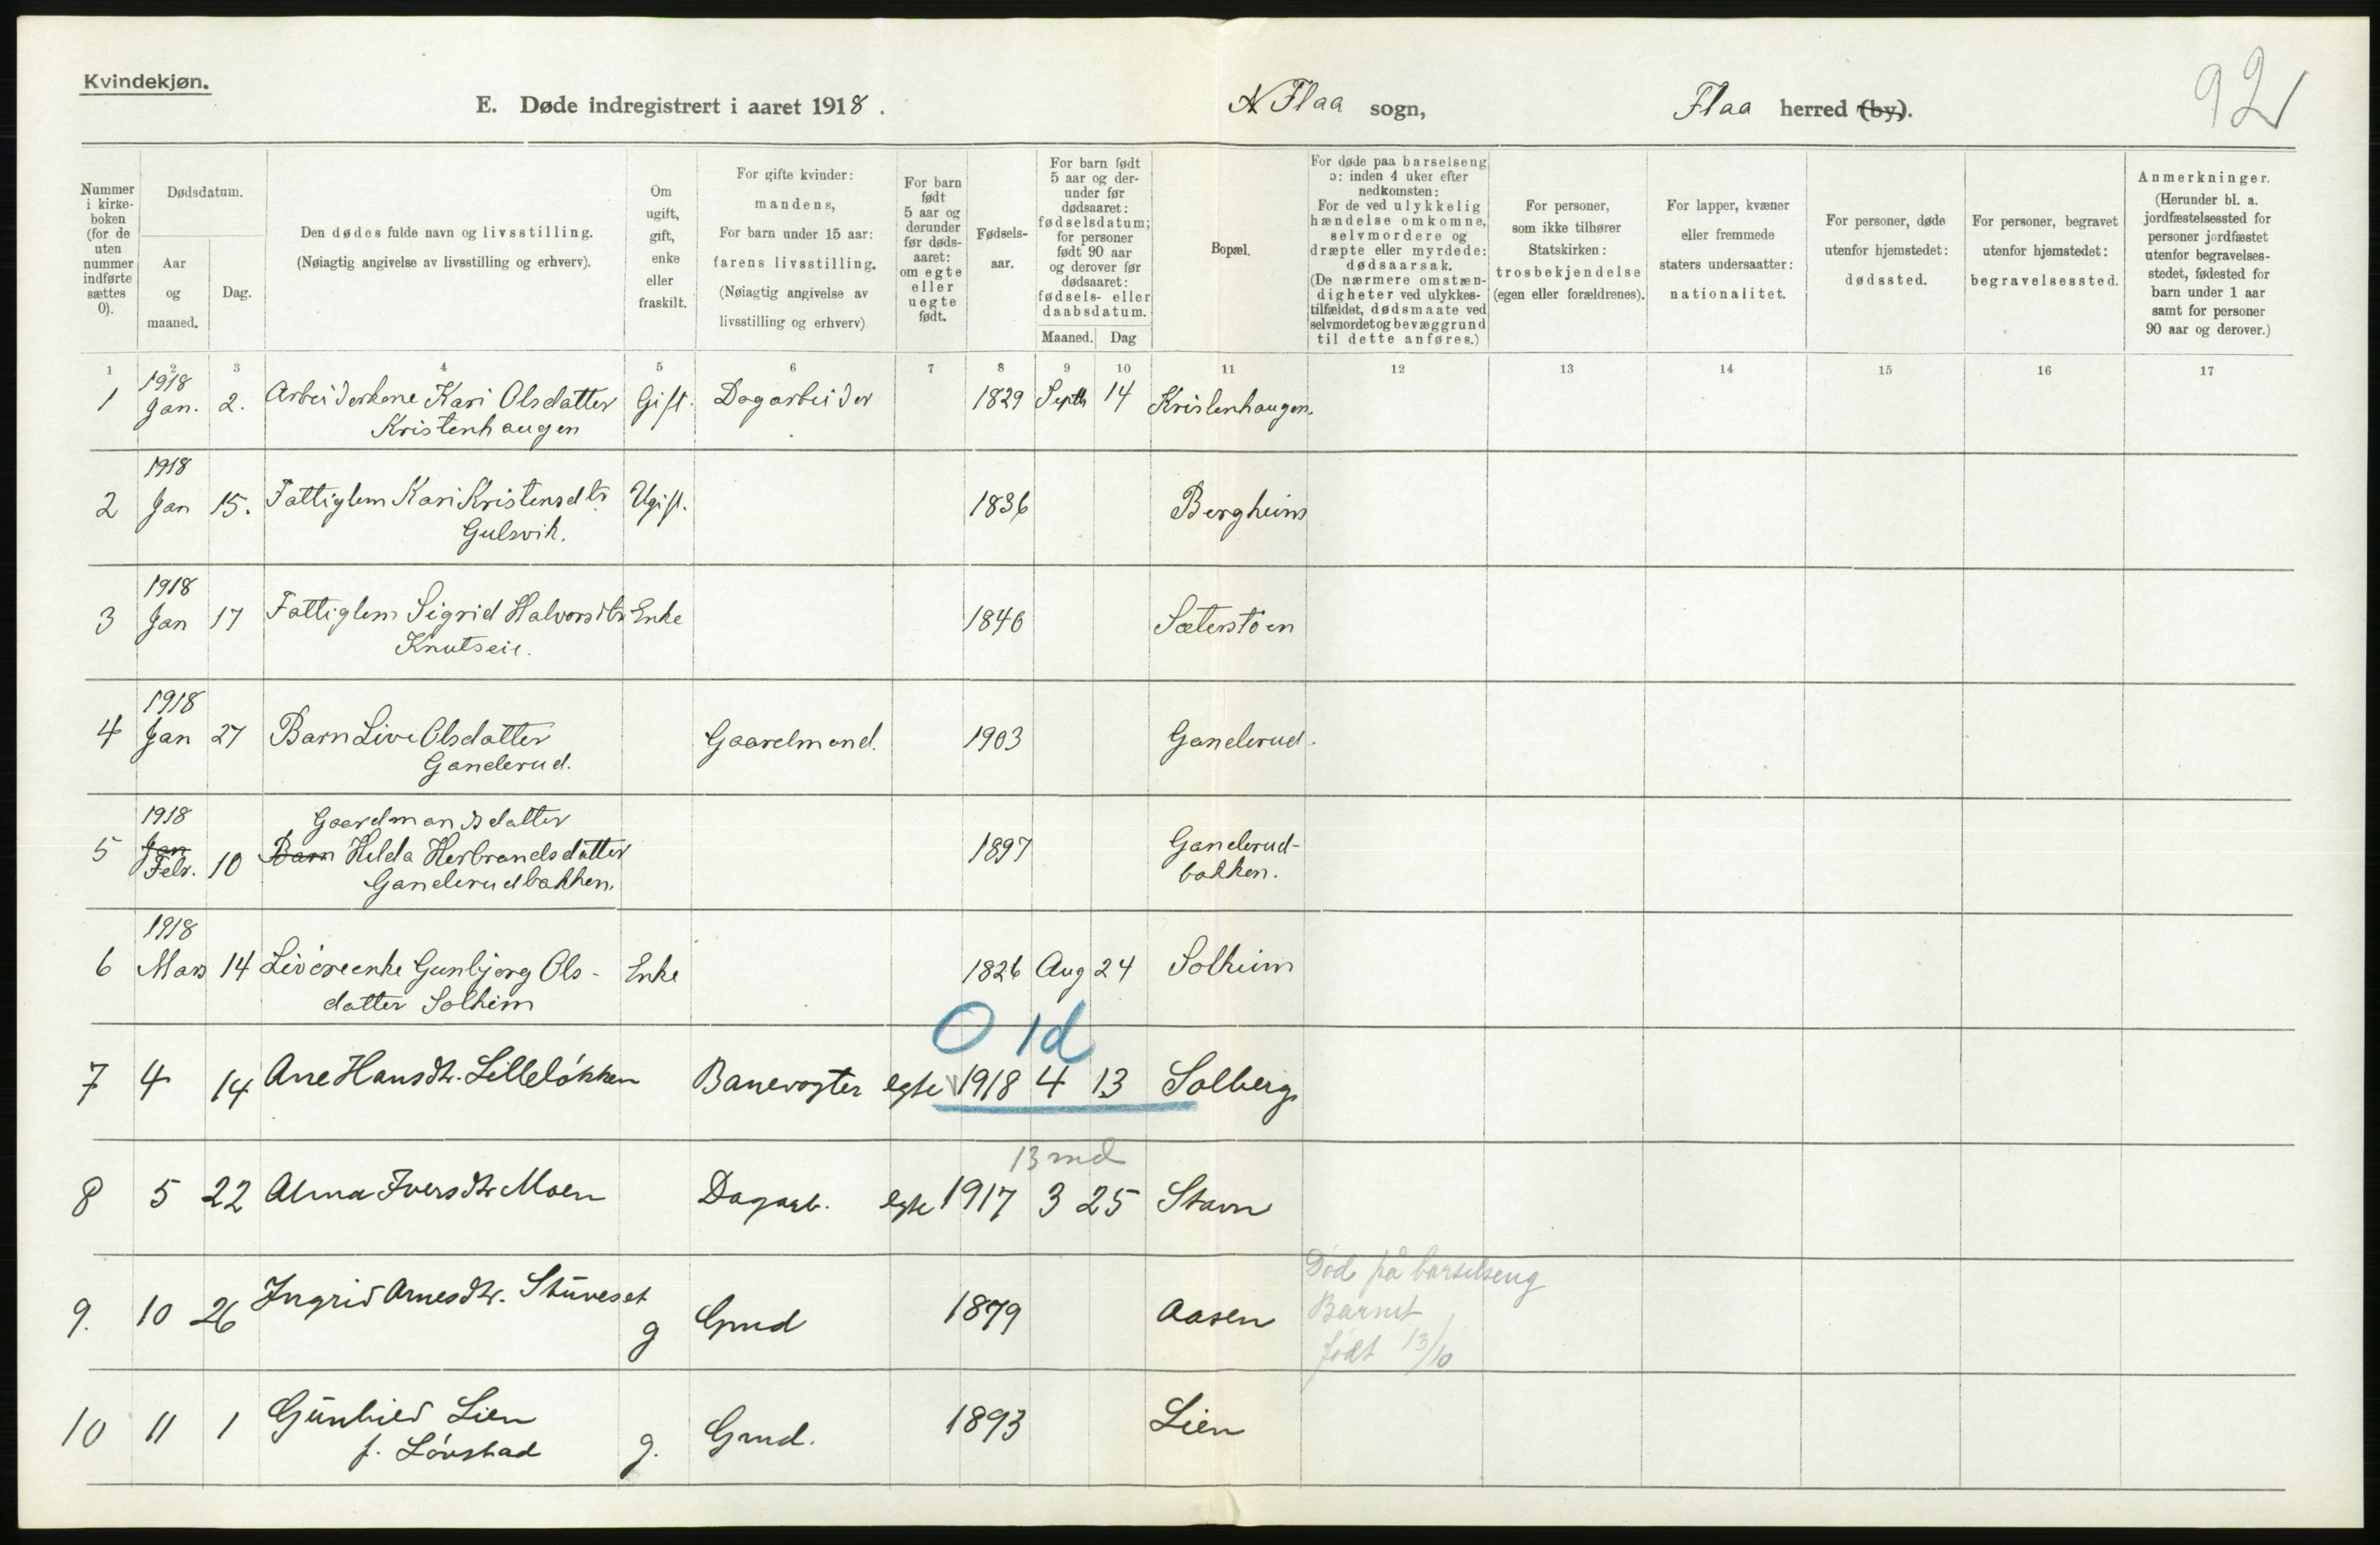 Kvindekjøn.
E. Døde indregistrert i aaret 1918.
N Flaa sogn,
Flaa herred (by).
92
Nummer i kirke-boken (for de uten nummer indførte sættes 0).
Dødsdatum.
Aar og maaned.
Dag.
Den dødes fulde navn og livsstilling.
(Nøiagtig angivelse av livsstilling og erhverv).
Om ugift, gift, enke eller fraskilt.
For gifte kvinder: mandens,
For barn under 15 aar: farens livsstilling.
(Nøiagtig angivelse av livsstilling og erhverv)
For barn født 5 aar og derunder før døds-aaret: om egte eller uegte født.
Fødsels-aar.
For barn født 5 aar og der-under før dødsaaret: fødselsdatum; for personer født 90 aar og derover før dødsaaret: fødsels- eller daabsdatum.
Maaned.
Dag
Bopæl.
For døde paa barselseng ɔ: inden 4 uker efter nedkomsten:
For de ved ulykkelig hændelse omkomne, selvmordere og dræpte eller myrdede: dødsaarsak.
(De nærmere omstæn-digheter ved ulykkes-tilfældet, dødsmaate ved selvmordet og bevæggrund til dette anføres.)
For personer, som ikke tilhører Statskirken: trosbekjendelse (egen eller forældrenes).
For lapper, kvæner eller fremmede staters undersaatter: nationalitet.
For personer, døde utenfor hjemstedet: dødssted.
For personer, begravet utenfor hjemstedet: begravelsessted.
Anmerkninger.
(Herunder bl. a. jordfæstelsessted for personer jordfæstet utenfor begravelses-stedet, fødested for barn under 1 aar samt for personer 90 aar og derover.)
1 2 3 4 5 6 7 8 9 10 11 12 13 14 15 16 17
1918
1 Jan. 2. Arbeiderkone Kari Olsdatter Gift. Dagarbeider 1829 Septb 14 Kristenhaugen.
Kristenhaugen
1918
2 Jan 15. Fattiglem Kari Kristensdtr Ugift. 1836 Bergheim
Gulsvik.
1918
3 Jan 17 Fattiglem Sigrid Halvorsdtr Enke 1846 Sæterstøen
Knutseie.
1918
4 Jan 27 Barn Live Olsdatter Gaardmand. 1903 Ganderud.
Ganderud.
1918 Gaardmandsdatter
5 Jan Febr. 10 Barn Helda Herbrandsdatter 1897 Ganderud-bakken.
Ganderudbakken.
1918
6 Mars 14 Livøreenke Gunbjørg Ols- Enke 1826 Aug 24 Solheim
datter Solheim
0 1d
7 4 14 Ane Hansdtr. Lilleløkken Banevogter egte 1918 4 13 Solberg
13 md
8 5 22 Alma Iversdtr Moen Dagarb. egte 1917 3 25 Stavn
9. 10 26 Ingrid Arnesdtr. Stuveset g Gmd 1879 Aasen
Død på barselseng
Barnet
født 13/10
10 11 1 Gunhild Lien g. Gmd. 1893 Lien
f. Løvstad